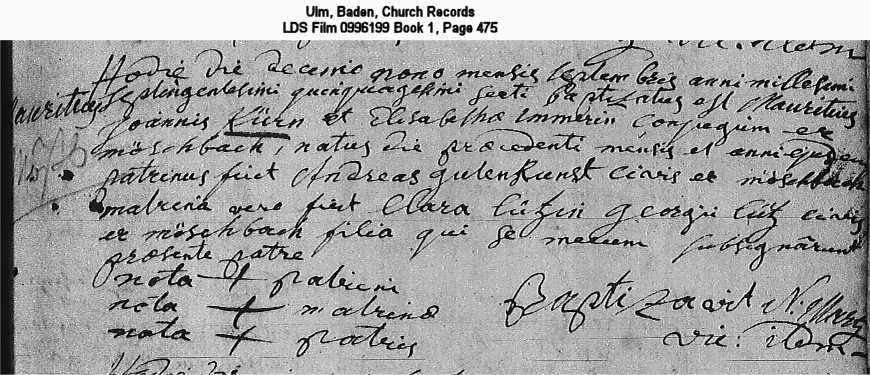 Ulm, Baden, Church Records
LDS Film 0996199 Book 1, Page 475
Hodie die decimo nono mensis septembris anni millesimi
Mauritius septingentesimi quinquagesimi sexti baptizatus est Mauritius
Joannis Kürn et Elisabethæ Immerin conjugum ex
möschbach, natus die præcedenti mensis et anni
patrinus fuit Andreas gutenkunst civis ex möschbach
matrina vero fuit Clara lützin georgii lütz civis
ex möschbach filia qui se mecum subsignârunt
præsente patre
nota + patrini
nota + matrinæ
nota + patris
Baptizavit N. Marz
vic: ilem